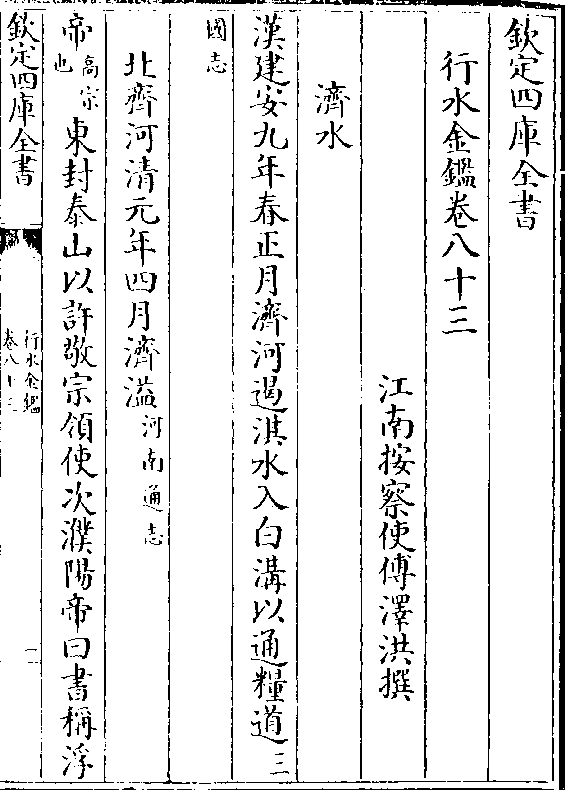 欽定四庫全書
行水金鑑卷八十三
江南按察使傅澤洪撰
濟水
漢建安九年春正月濟河遏淇水入白溝以通糧道三
國志
北齊河清元年四月濟溢河南通志
帝高宗也東封泰山以許敬宗領使次濮陽帝曰書稱浮
欽定四庫全書
行水金鑑
卷八十三
一